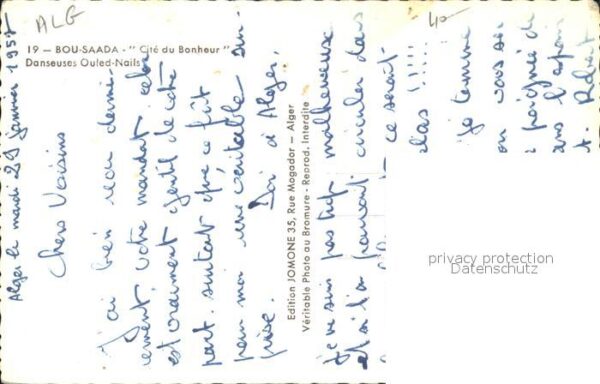 ALG
40
19 — BOU-SAADA - " Cité du Bonheur "
Danseuses Ouled-Nails
Alger le mardi 29 janvier 1957
Chers Voisins
J'ai bien reçu dernièrement votre mandat, cela
est vraiment gentil de votre
part. surtout que ce fût
pour moi une véritable surprise.
Ici à Alger,
je ne suis pas trop malheureux
et si l'on pouvait circuler dans
ce serait
!!!!!
Je termine
en vous
poignée de
Edition JOMONE 35, Rue Mogador — Alger
Véritable Photo au Bromure - Reprod. Interdite
privacy protection
Datenschutz